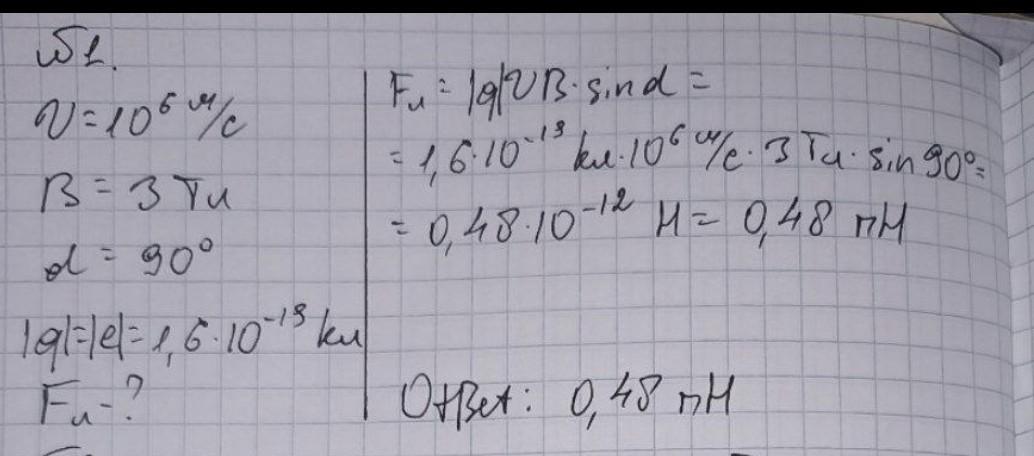 №1.
υ=10⁶ м/с
B = 3 Тл
α = 90°
|q|=|e|=1,6·10⁻¹⁹ кл
Fл-?
Fл = |q|υB·sinα =
= 1,6·10⁻¹⁹ кл·10⁶ м/с·3 Тл·sin 90°=
= 0,48·10⁻¹² Н = 0,48 пН
Ответ: 0,48 пН